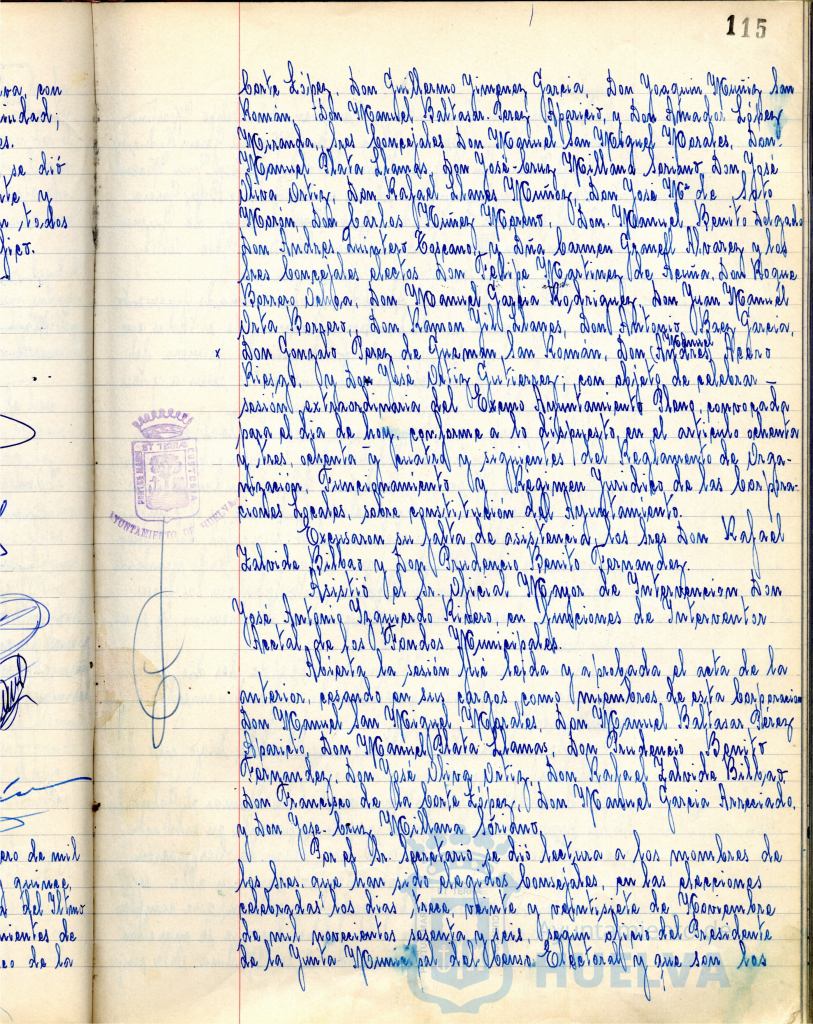 115
Corte López, Don Guillermo Jimenez Garcia, Don Joaquin Muñiz San
Román, Don Manuel Baltasar Perez Aparicio, y Don Amador López
Miranda, Sres Concejales Don Manuel San Miguel Morales, Don
Manuel Plata Llamas, Don José-Cruz Millana Soriano, Don José
Oliva Ortiz, Don Rafael Llanes Muñoz, Don José Mª de Soto
Moron, Don Carlos Núñez Moreno, Don Manuel Benito Delgado
Don Andres Quintero Toscano, y Dña Carmen Alvarez y los
Sres Concejales electos Don Felipe Martinez de Acuña, Don Roque
Borrero Ochoa, Don Manuel Garcia Rodriguez, Don Juan Manuel
Orta Borrero, Don Ramon Gil Llanes, Don Antonio Baez Garcia,
x Don Gonzalo Perez de Guzman San Román, Don Andres Manuel Acero
Riesgo, y Don José Ortiz Gutierrez; con objeto de celebrar
sesión extraordinaria del Excmo Ayuntamiento Pleno, convocada
para el dia de hoy, conforme a lo dispuesto, en el articulo ochenta
y tres, ochenta y cuatro y siguientes del Reglamento de Orga-
nizacion, Funcionamiento y Regimen Juridico de las Corpora-
ciones Locales, sobre constitución del Ayuntamiento.
Excusaron su falta de asistencia los Sres Don Rafael
Zalvide Bilbao y Don Prudencio Benito Fernandez.
Asistió el Sr. Oficial Mayor de Intervencion, Don
José Antonio Izquierdo Rivero, en funciones de Interventor
Acctal de los Fondos Municipales.
Abierta la sesión fué leida y aprobada el acta de la
anterior, cesando en sus cargos como miembros de esta Corporacion
Don Manuel San Miguel Morales, Don Manuel Baltasar Perez
Aparicio, Don Manuel Plata Llamas, Don Prudencio Benito
Fernandez, Don José Oliva Ortiz, Don Rafael Zalvide Bilbao,
Don Francisco de la Corte López, Don Manuel Garcia Arreciado,
y Don José-Cruz Millana Soriano.
Por el Sr. Secretario se dió lectura a los nombres de
los Sres. que han sido elegidos Concejales, en las elecciones
celebradas los dias trece, veinte y veintisiete de Noviembre
de mil novecientos sesenta y seis, segun oficio del Presidente
de la Junta Municipal del Censo Electoral y que son los
AYUNTAMIENTO DE HUELVA
PORTUS MARIS ET TERRAE CUSTODIA
Ayuntamiento de
HUELVA